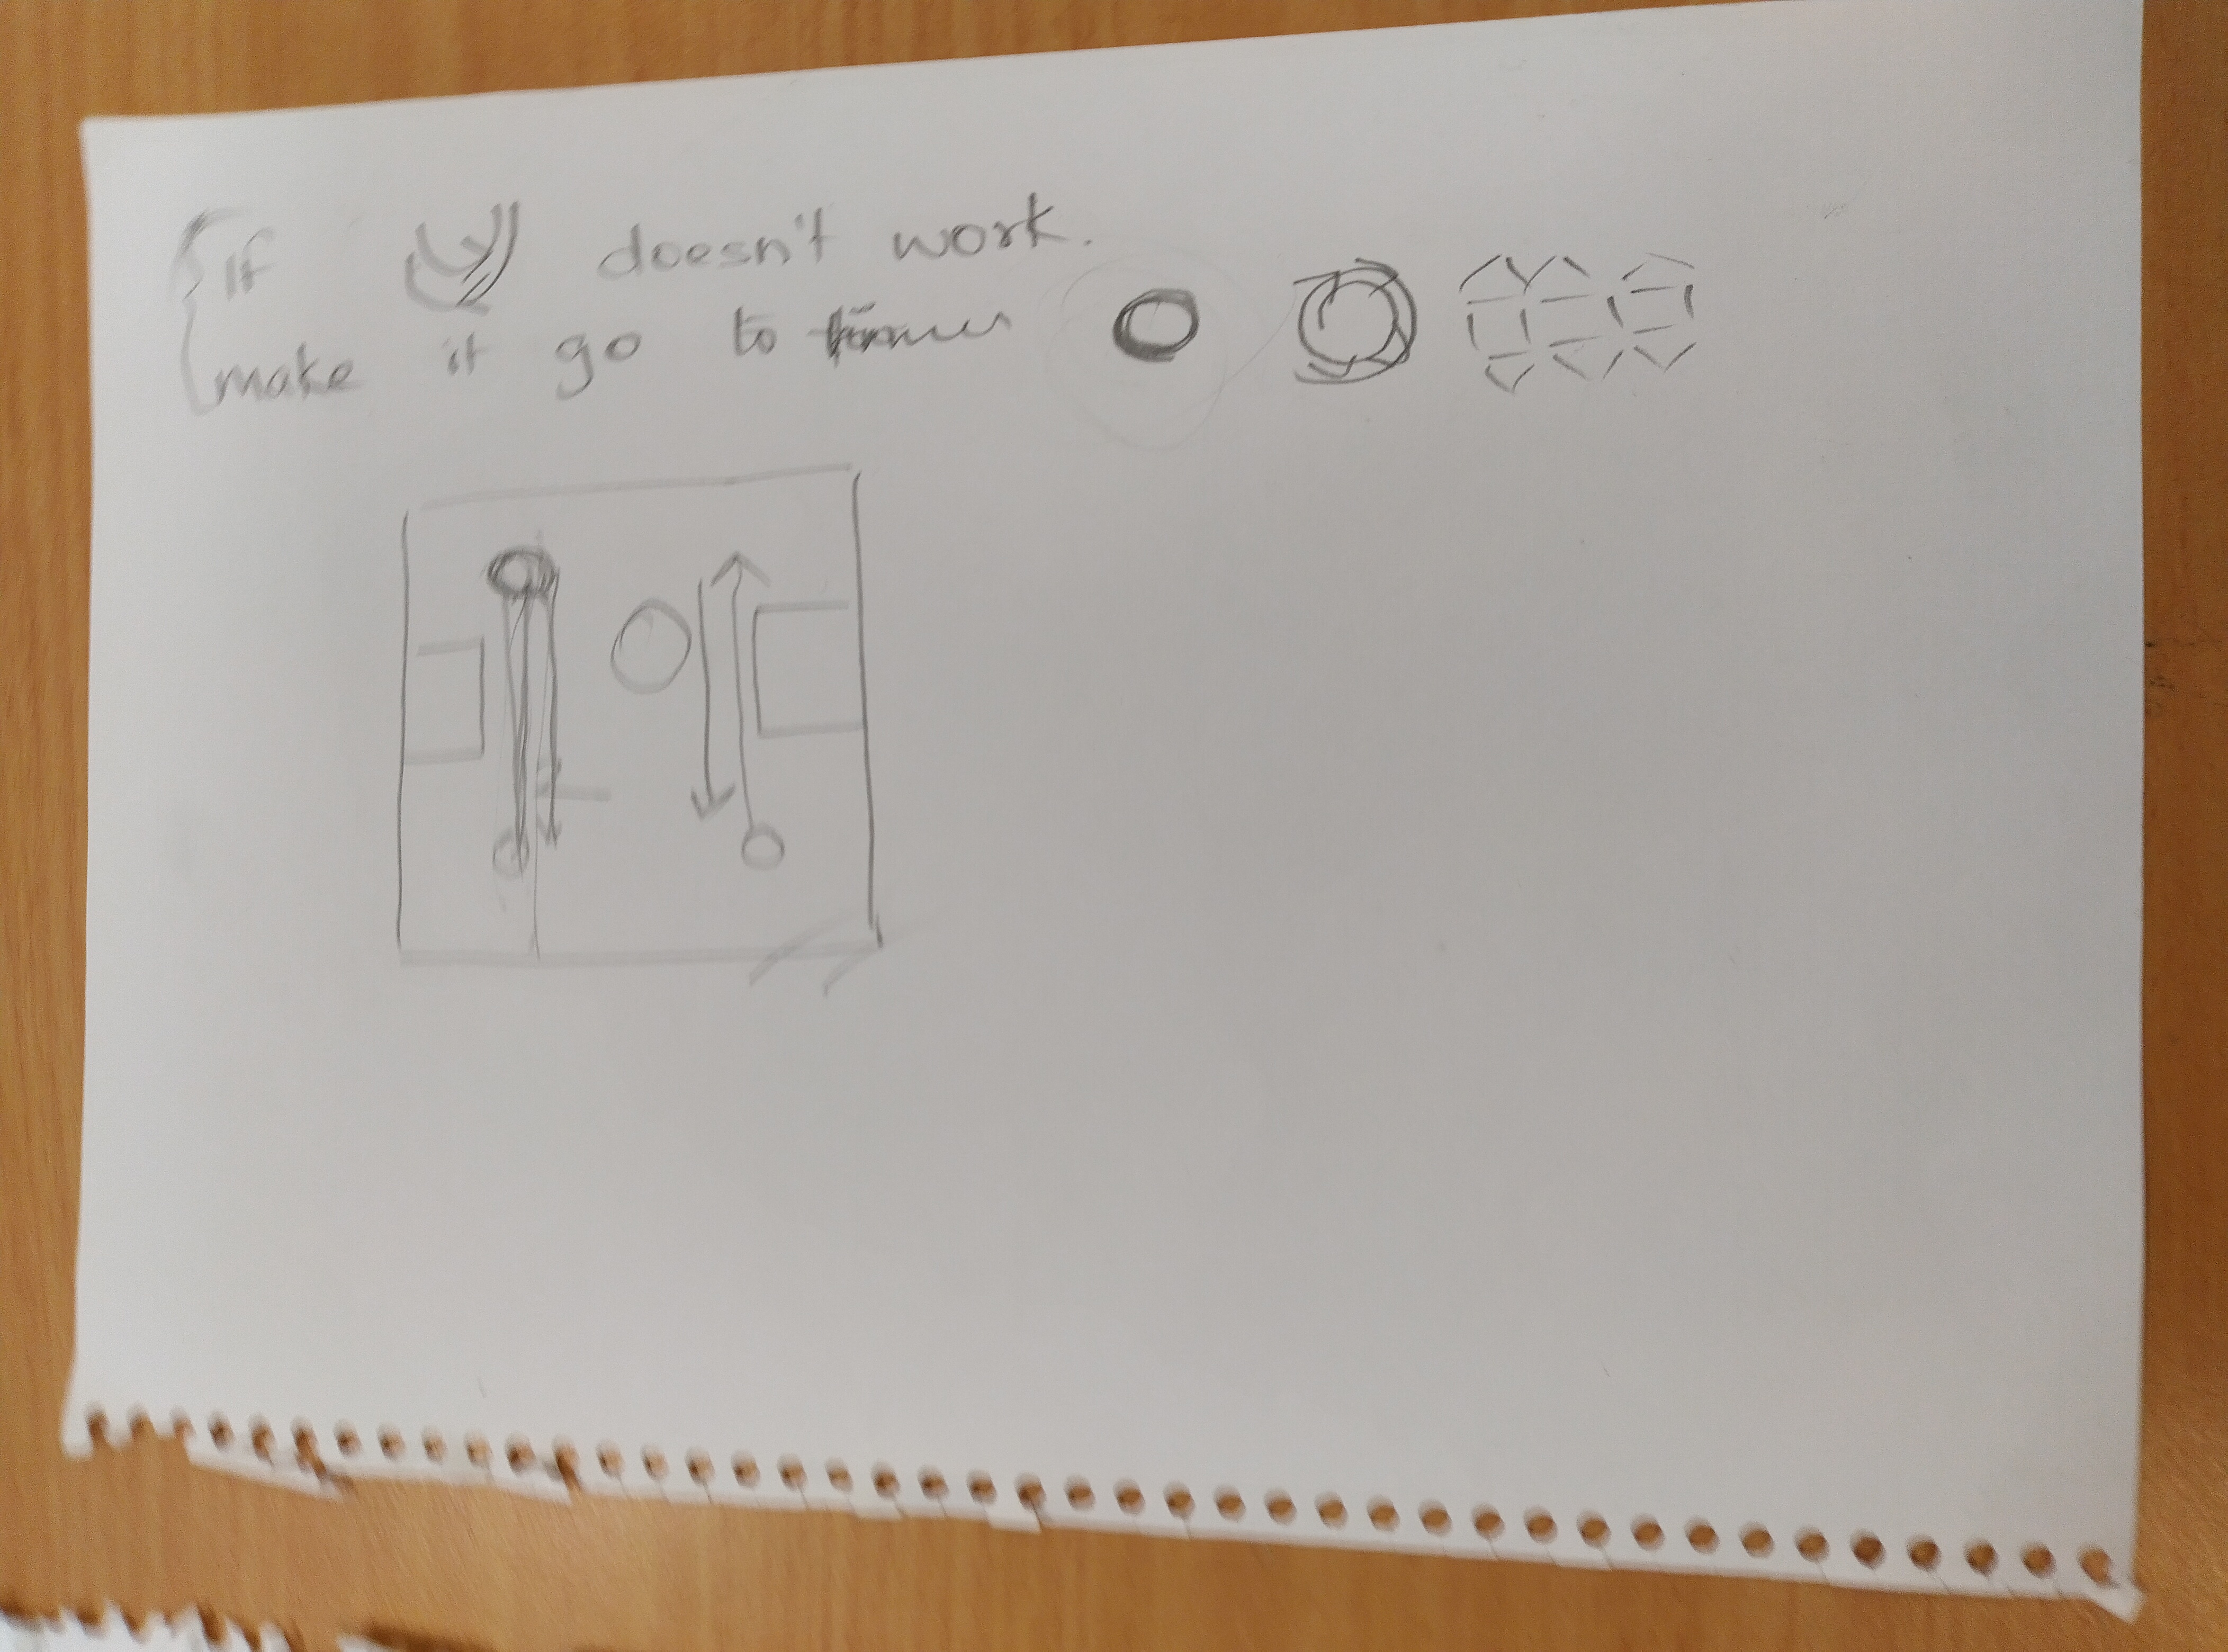 If doesn't work.
make it go to